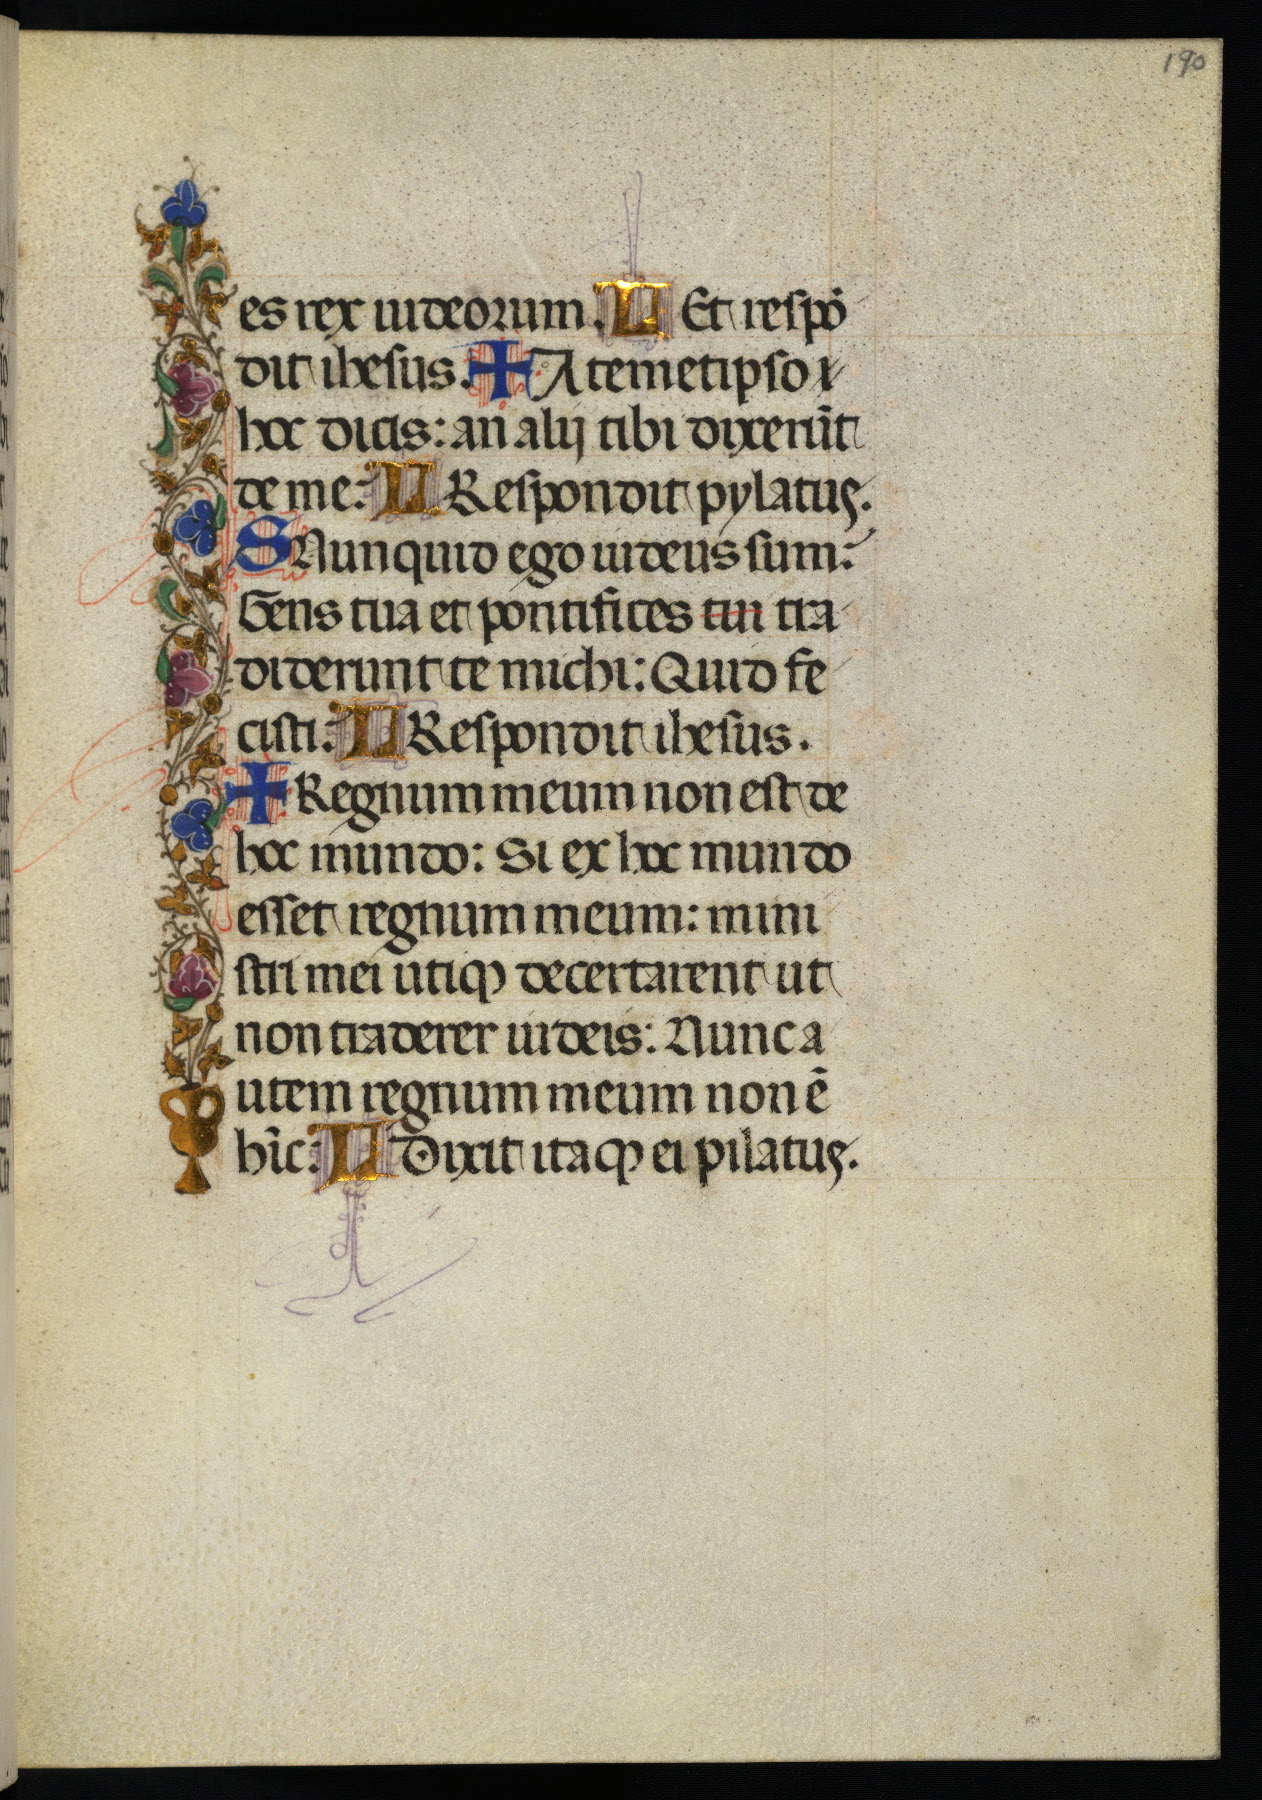 190
es rex iudeorum. C Et respō
dit ihesus. + A temetipso
hoc dicis: an alij tibi dixerūt
de me: C Respondit pylatus.
S Nunquid ego iudeus sum:
Gens tua et pontifices tui tra
diderunt te michi: Quid fe
cisti: C Respondit ihesus.
+ Regnum meum non est de
hoc mundo: Si ex hoc mundo
esset regnum meum: mini
stri mei utiqꝫ decertarent ut
non traderer iudeis: Nunc a
utem regnum meum non ē
hīc: C Dixit itaqꝫ ei pilatus.